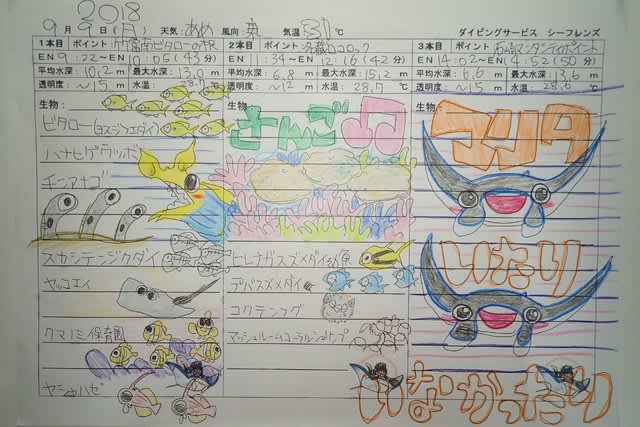 2018
9月9日(日) 天気:あめ 風向 気温 30℃ ダイビングサービス シーフレンズ
1本目 ポイント ビタローの根
EN 9:22～EN 10:05(43分)
平均水深:10.2m 最大水深:13.0m
透明度:～15m 水温:28.
生物:
ビタロー(ヨスジフエダイ)
ハナヒゲウツボ
チンアナゴ
スカシテンジクダイ
ヤッコエイ
クマノミ保育園
ヤシャハゼ
2本目 ポイント ロック
EN 11:34～EN 12:16(42分)
平均水深:6.8m 最大水深:15.2m
透明度:～12m 水温:28.7℃
生物
さんご
ヒレナガスズメダイ幼魚
デバスズメダイ
コクテンフグ
マッシュルームコーラルシュリンプ
3本目 ポイント 石崎マンタシティポイント
EN 14:02～EN 14:52(50分)
平均水深:6.6m 最大水深:13.6m
透明度:～15m 水温:28.6℃
生物
マンタ
いたり
いなかったり